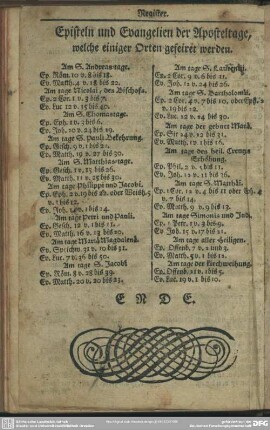 Register.
Episteln und Evangelien der Aposteltage,
welche einiger Orten gefeiret werden.
Am S. Andreastage.
Ep. Röm. 10 v. 8 bis 18.
Ev. Matth. 4 v. 18 bis 22.
Am tage Nicolai, des Bischofs.
Ep. 2 Cor. 1 v. 3 bis 7.
Ev. Luc. 12 v. 35 bis 40.
Am S. Thomastage.
Ep. Eph. 1 v. 3 bis 6.
Ev. Joh. 20 v. 24 bis 29.
Am tage S. Pauli Bekehrung.
Ep. Gesch. 9 v. 1 bis 21.
Ev. Matth. 19 v. 27 bis 30.
Am S. Matthiastage.
Ep. Gesch. 1 v. 15 bis 26.
Ev. Matth. 11 v. 25 bis 30.
Am tage Philippi und Jacobi.
Ep. Eph. 2 v. 19 bis
Ev. Joh. 14 v. 1 bis 14.
Am tage Petri und Pauli.
Ep. Gesch. 12 v. 1 bis 11.
Ev. Matth. 16 v. 13 bis 20.
Am tage Mariä Magdalenä.
Ep. Sprichw. 31 v. 10 bis 31.
Ev. Luc. 7 v. 36 bis 50.
Am tage S. Jacobi
Ep. Röm. 8 v. 28 bis 39.
Ev. Matth. 20 v. 20 bis 23.
Am tage S. Laurentii.
Ep. 2 Cor. 9 v. 6 bis
Ev. Joh. 12 v. 24 bis 26.
Am tage S. Bartholomäi.
Ep. 2 Cor. 4 v. 7 bis 10, oder Eph. 2
v. 19 bis 22.
Ev. Luc. 22 v. 24 bis 30.
Am tage der geburt Mariä.
Ep. Sir. 24 v. 22 bis 31.
Ev. Matth. 1 v. 1 bis 16.
Am tage des heil. Creuzes
Erhöhung.
Ep. Phil. 2 v. 5 bis 11.
Ev. Joh. 12 v. 31 bis 36.
Am tage S. Matthäi.
v. 7 bis 14.
Ev. Matth. 9 v. 9 bis 13.
Am tage Simonis und Judä.
Ep. 1 Petr. 1 v. 3 bis 9.
Ev. Joh. 15 v. 17 bis 21.
Am tage aller Heiligen.
Ep. Offenb. 7 v. 2 und 3.
Ev. Matth. 5 v. 1 bis 12.
Am tage der Kirchweihung.
Ep. Offenb. 21 v. 1 bis 5.
Ev. Luc. 19 v. 1 bis 10.
E N D E.
DFG